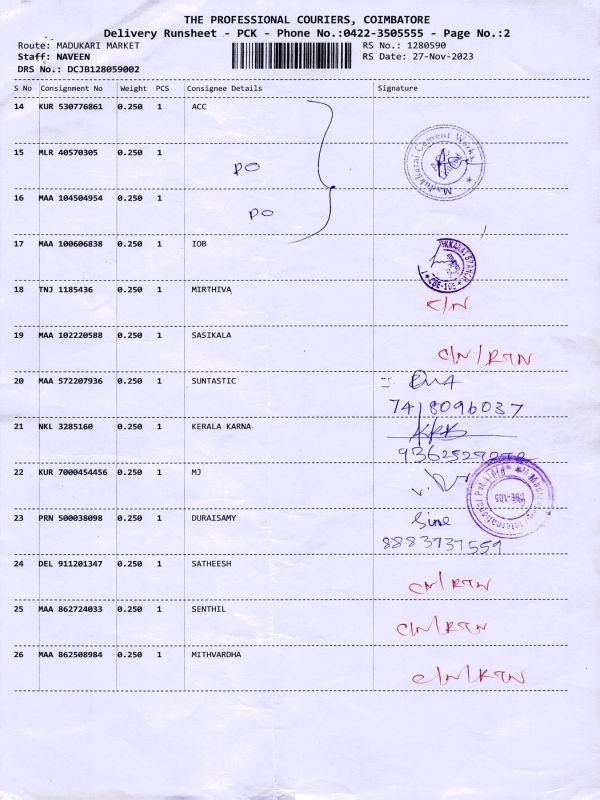 THE PROFESSIONAL COURIERS, COIMBATORE
Delivery Runsheet - PCK - Phone No.:0422-3505555 - Page No.:2
Route: MADUKARI MARKET RS No.: 1280590
Staff: NAVEEN RS Date: 27-Nov-2023
DRS No.: DCJB128059002
S No Consignment No Weight PCS Consignee Details Signature
14 KUR 530776861 0.250 1 ACC
Madukkarai Cement Works
15 MLR 40570305 0.250 1
DO
16 MAA 104504954 0.250 1
DO
17 MAA 100606838 0.250 1 IOB
BRANCH
CBE-105
18 TNJ 1185436 0.250 1 MIRTHIVA
C/N
19 MAA 102220588 0.250 1 SASIKALA
C/N/RTN
20 MAA 572207936 0.250 1 SUNTASTIC
7418096037
21 NKL 3285160 0.250 1 KERALA KARNA
22 KUR 7000454456 0.250 1 MJ
International Pvt Ltd
CBE-105
23 PRN 500038098 0.250 1 DURAISAMY
8883737559
24 DEL 911201347 0.250 1 SATHEESH
C/N/RTN
25 MAA 862724033 0.250 1 SENTHIL
C/N/RTN
26 MAA 862508984 0.250 1 MITHVARDHA
C/N/RTN